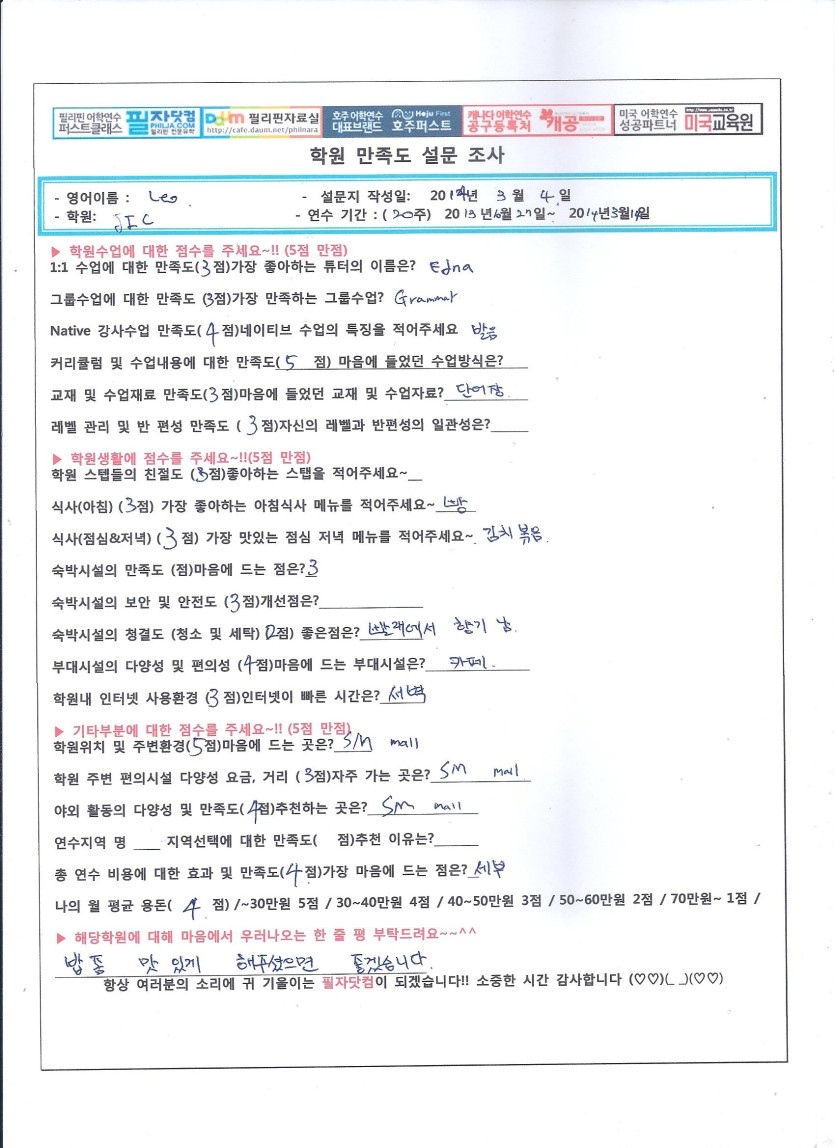 필리핀 어학연수 퍼스트클래스 필자닷컴 PHILJA.COM 필리핀 전문유학 Daum 필리핀자료실 http://cafe.daum.net/philnara 호주 어학연수 대표브랜드 Hoju First 호주퍼스트 캐나다 어학연수 공구등록처 캐공 미국 어학연수 성공파트너 미국교육원
학원 만족도 설문 조사
- 영어이름 : Leo - 설문지 작성일: 2014년 3 월 4 일
- 학원: JIC - 연수 기간 : (20주) 2013년6월27일~ 2014년3월14일
▶ 학원수업에 대한 점수를 주세요~!! (5점 만점)
1:1 수업에 대한 만족도(3점)가장 좋아하는 튜터의 이름은? Edna
그룹수업에 대한 만족도 (3점)가장 만족하는 그룹수업? Grammar
Native 강사수업 만족도( 4 점)네이티브 수업의 특징을 적어주세요 발음
커리큘럼 및 수업내용에 대한 만족도( 5 점) 마음에 들었던 수업방식은?
교재 및 수업재료 만족도(3점)마음에 들었던 교재 및 수업자료? 단어장
레벨 관리 및 반 편성 만족도 ( 3점)자신의 레벨과 반편성의 일관성은?
▶ 학원생활에 점수를 주세요~!!(5점 만점)
학원 스텝들의 친절도 (3점)좋아하는 스탭을 적어주세요~
식사(아침) (3점) 가장 좋아하는 아침식사 메뉴를 적어주세요~ 빵
식사(점심&저녁) ( 3 점) 가장 맛있는 점심 저녁 메뉴를 적어주세요~ 김치볶음.
숙박시설의 만족도 (점)마음에 드는 점은? 3
숙박시설의 보안 및 안전도 (3점)개선점은?
숙박시설의 청결도 (청소 및 세탁) (2점) 좋은점은? 빨래에서 향기 남.
부대시설의 다양성 및 편의성 (4점)마음에 드는 부대시설은? 카페.
학원내 인터넷 사용환경 (3 점)인터넷이 빠른 시간은? 새벽
▶ 기타부분에 대한 점수를 주세요~!! (5점 만점)
학원위치 및 주변환경(5점)마음에 드는 곳은? SM mall
학원 주변 편의시설 다양성 요금, 거리 ( 3점)자주 가는 곳은? SM mall
야외 활동의 다양성 및 만족도(4점)추천하는 곳은? SM mall
연수지역 명 ___ 지역선택에 대한 만족도( 점)추천 이유는?
총 연수 비용에 대한 효과 및 만족도(4점)가장 마음에 드는 점은? 세부
나의 월 평균 용돈( 4 점) /~30만원 5점 / 30~40만원 4점 / 40~50만원 3점 / 50~60만원 2점 / 70만원~ 1점 /
▶ 해당학원에 대해 마음에서 우러나오는 한 줄 평 부탁드려요~~^^
밥 좀 맛 있게 해주셨으면 좋겠습니다.
항상 여러분의 소리에 귀 기울이는 필자닷컴이 되겠습니다!! 소중한 시간 감사합니다 (♡♡)(_ _)(♡♡)